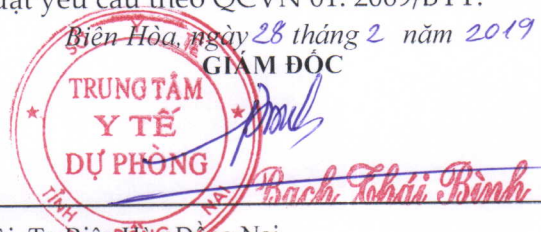 đạt yêu cầu theo QCVN 01: 2009/BYT.
Biên Hòa, ngày 28 tháng 2 năm 2019
GIÁM ĐỐC
TRUNG TÂM
Y TẾ
DỰ PHÒNG
TỈNH NAI
Bạch Thái Bình
Biên Hòa, Đồng Nai